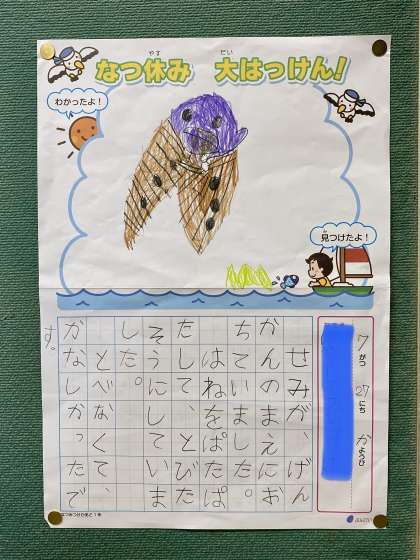 なつ休み 大はっけん!
やす
だい
わかったよ!
見つけたよ!
み
7がつ 27にち かようび
せみが、げん
かんのまえにお
ちていました。
はねをぱたぱ
たして、とびた
そうにしていま
した。
とべなくて、
かなしかったで
す。